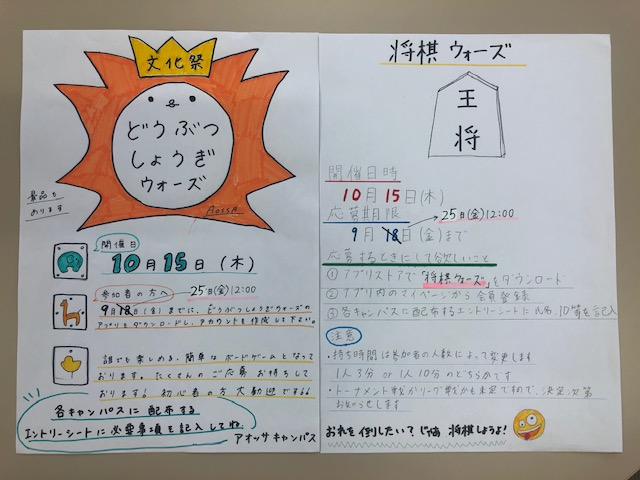 文化祭
どうぶつ
しょうぎ
ウォーズ
AOSSA
景品も
あります
開催日
10月15日(木)
参加者の方へ
25日(金)12:00
9月18日(金)までに、どうぶつしょうぎウォーズの
アプリをダウンロードし、アカウントを作成して下さい。
誰でも楽しめる、簡単なボードゲームとなって
おります。たくさんのご応募お待ちして
おります。初心者の方大歓迎です!!
各キャンパスに配布する
エントリーシートに必要事項を記入してね
アオッサキャンパス
将棋ウォーズ
王
将
開催日時
10月15日(木)
応募期限
25日(金)12:00
9月18日(金)まで
応募するときにして欲しいこと
①アプリストアで「将棋ウォーズ」をダウンロード
②アプリ内のマイページから会員登録
③各キャンパスに配布するエントリーシートに氏名、ID等を記入
注意
・持ち時間は参加者の人数によって変更します
1人3分 or 1人10分のどちらかです
・トーナメント戦かリーグ戦かも未定ですので、決定次第
お知らせします
おれを倒したい?じゃあ将棋しようよ!